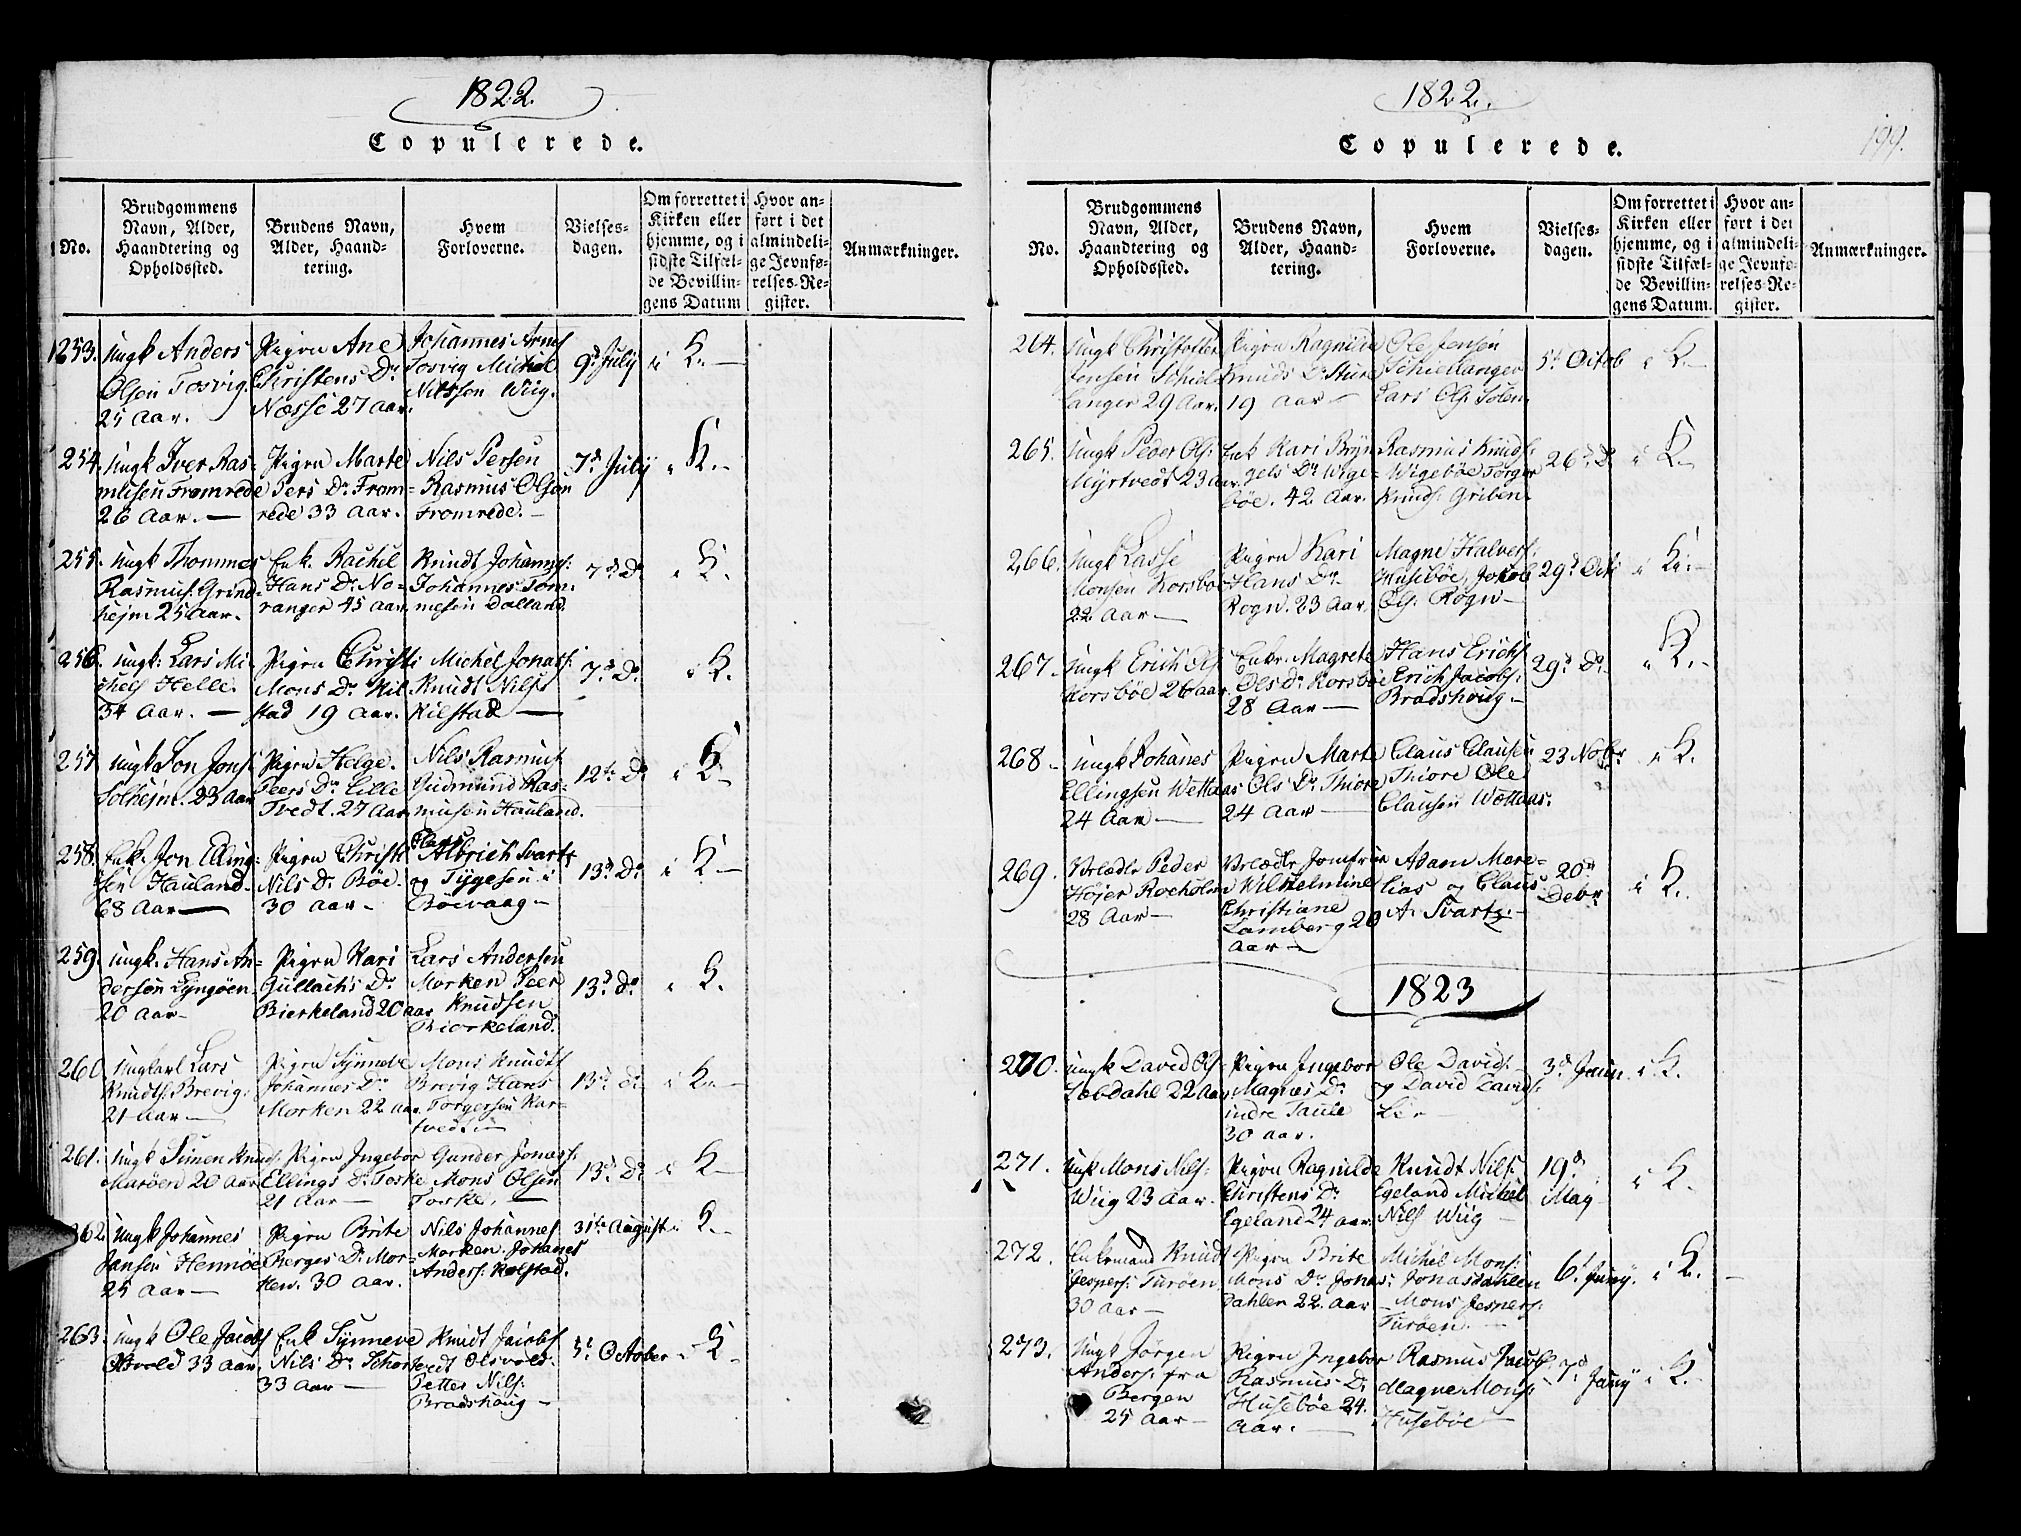 1822.
Copulerede.
No.
Brudgommens
Navn, Alder,
Haandtering og
Opholdssted.
Brudens Navn,
Alder, Haand-
tering.
Hvem
Forloverne.
Vielses-
dagen.
Om forrettet i
Kirken eller
hjemme, og i
sidste Tilfæl-
de Bevillin-
gens Datum
Hvor an-
ført i det
almindeli-
ge Jevnfø-
relses-Re-
gister.
Anmærkninger.
1253.
Ungk Anders
Olsen Tosvig.
25 Aar.
Pigen Ane
Christens Dr
Næsse 27 aar.
Johannes Arnes
Tosvig Michel
Nilssen Wiig.
9d July
i K. —
254.
Ungk Iver Ras=
musen Fromrede
26 Aar. —
Pigen Marte
Pers Dr From=
rede 33 Aar.
Nils Persen
Rasmus Olsen
Fromrede. —
7d July
i K. —
255.
Ungk Thommes
Rasmus: Grind=
hejm 25 Aar.
Enk. Rachel
Hans Dr No=
ranger 45 aar
Knudt Johannes:
Johannes Tom=
mesen Dalland.
7d Do
i K.
256.
Ungk: Lars Mi=
chels Helle.
34 Aar. —
Pigen Christi
Mons Dr Kil
stad 19 Aar.
Michel Jonas:
Knudt Nils:
Kilstad —
7d Do
i K.
257
Ungk Jon Jons:
Solhejm. 23 Aar
Pigen Helge.
Peers Dr Lille
Tvedt. 27 Aar
Nils Rasmus
Gudmund Ras=
musen Hauland.
12te Do
i K. —
258.
Enk. Jon Elling=
sen Hauland.
68 Aar —
Pigen Christi
Nils Dr Böe.
30 Aar —
Claus
Albrich Svartz
og Tygesen i
Böevaag —
13d Do
i K —
259.
Ungk. Hans An=
dersen Lyngöen.
20 Aar —
Pigen Kari
Gullachs Dr
Bierkeland 20 aar
Lars Andersen
Morken Peer
Knudsen
Biorkeland.
13d Do
i K.
260
Ungkarl Lars
Knudts: Brevig.
21 Aar —
Pigen Synneve
Johannes Dr
Morken 22 aar
Mons Knudts
Brevig Hans
Torgersen Kar=
tvedt —
13d Do
i K. —
261.
Ungk Simen Knuds:
Maröen 20 Aar
Pigen Ingebor
Ellings Dr Torske
21 Aar —
Gunder Jonas:
Mons Olsen
Torske. —
13d Do
i K —
262.
Ungk Johannes
Jansen Hennöe
25 Aar —
Pigen Brite
Berges Dr Mor=
ken. 30 Aar.
Nils Johannes
Morken. Johanes
Anders: Kolstad.
31te August
i K. —
263.
Ungk Ole Jacobs
Olsvold 33 aar.
Enk Synneve
Nils Dr Schort
33 Aar —
Knudt Jacobs
vedt Olsvold.
Petter Nils:
Bradshoug —
5t October
i K —
1822.
Copulerede.
199.
No.
Brudgommens
Navn, Alder,
Haandtering og
Opholdssted.
Brudens Navn,
Alder, Haand-
tering.
Hvem
Forloverne.
Vielses-
dagen.
Om forrettet i
Kirken eller
hjemme, og i
sidste Tilfæl-
de Bevillin-
gens Datum.
Hvor an-
ført i det
almindeli-
ge Jevnfø-
relses-Re-
gister.
Anmærkninger.
264.
Ungk Christoffer
Jensen Schiel
langer 29 Aar.
Pigen Ragnilde
Knuds Dr Sture
19 Aar —
Ole Jensen
Schiellanger
Lars Ols:
5t Octob
i K. —
265.
Ungk Peder Ols:
Myrtvedt 23 Aar.
Enk Kari Bryn
gels Dr Wige=
böe. 42 Aar.
Rasmus Knuds:
Wigeböe Torger
Knuds: Griben.
26d Do
i K. —
266.
Ungk Lasse
Monsen Korsböe
22 Aar —
Pigen Kari
Hans Dr
Rogn. 23 Aar.
Magne Halvers:
Huseböe, Jokob
Ols: Rogn —
29d Oct
i K. —
267.
Ungk Erich Ols
Korsböe 26 aar.
Enke. Magrete
Ols Dr Korsböe
28 Aar —
Hans Erichs
Erich Jacobs:
Bradshoug —
29d Do
i K. —
268 —
Ungk Johanes
Ellingsen Wettaas
24 Aar —
Pigen Marte
Ols Dr Thiore
24 Aar —
Claus Clausen
Thiore Ole
Clausen Wettaas.
23 Nobr
i K.
269.
Velædle Peder
Höjer Rocholm
28 Aar —
Velædle Jomfrue
Wilhelmine
Christiane
Lamberg 20
Aar —
Adam More=
lias og Claus
A. Svartz. —
20d
Debr
i K.
1823
270.
Ungk David Ols:
Løbdahl 22 Aar
Pigen Ingebor
Magnes Dr
indre Taule
30 Aar.
Ole Davids: —
og David Davids:
Lie —
3d Janu.
i K.
271.
Ungk Mons Nils:
Wiig 23 Aar.
Pigen Ragnilde
Christens Dr
Egeland 24 aar.
Knudt Nils:
Egeland Michel
Nils Wiig —
19d
May
i K.
272.
Enkemand Knudt
Jespers: Turöen
30 Aar —
Pigen Brite
Mons Dr Jonas:
dahlen 22. aar
Michel Mons:
Jonasdahlen
Mons Jespers:
Turöen. —
6t Juny.
i K. —
273.
Ungk Jörgen
Anders: fra
Bergen
25 Aar —
Pigen Ingebor
Rasmus Dr
Huseböe 24.
Aar. —
Rasmus Jacobs:
Magne Mons:
Huseböe —
7d Juny
i K. —